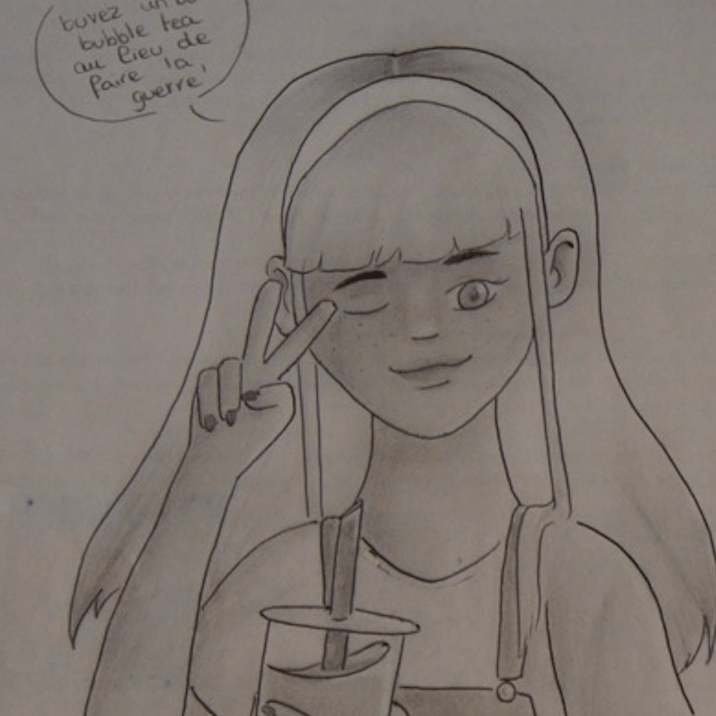 buvez un
bubble tea
au lieu de
faire la
guerre